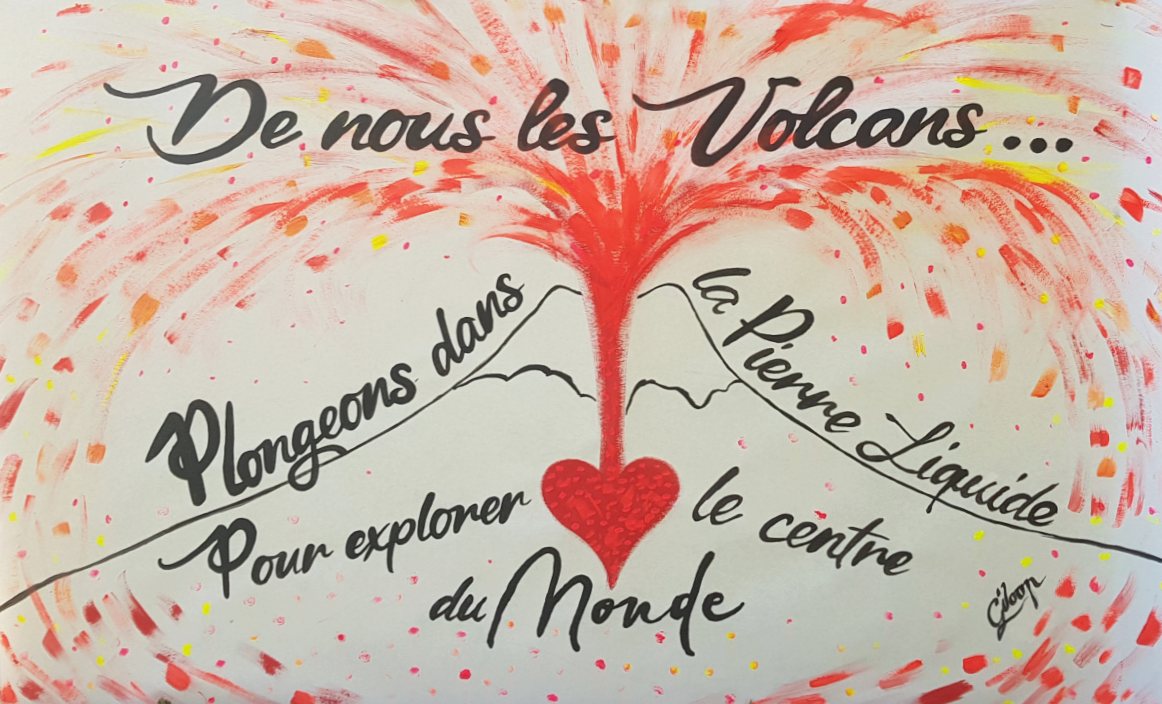 De nous les Volcans...
Plongeons dans
la Pierre Liquide
Pour explorer le centre
du Monde